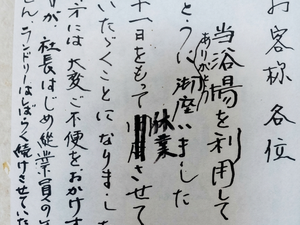 お客様各位
当浴場を利用して
とうにありがとう御座いました
十一日をもって休業させて
いたゞくことになりました
方には大変ご不便をおかけす
が、社長はじめ従業員の
ランドリーはしばらく続けさせていた